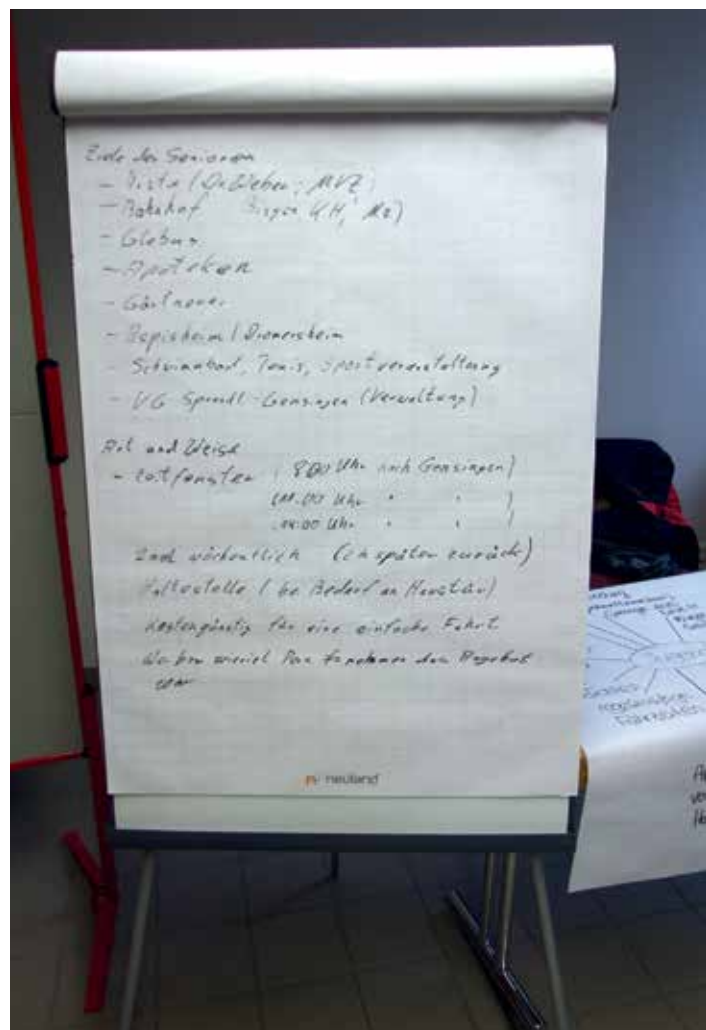 Ziele der Senioren
- Ärzte (Dr. Weber, MVZ)
- Bahnhof Bingen KH, Mz)
- Globus
- Apoteken
- Gärtnerei
- Aspisheim / Dromersheim
- Schwimmbad, Tenis, Sportveranstaltung
- VG Sprendl-Gensingen (Verwaltung)
Art und Weise
- Zeitfenster (800 Uhr nach Gensingen)
(11.00 Uhr " " )
14:00 Uhr " " )
2mal wöchentlich (2h später zurück)
Haltestelle ( bei Bedarf an Haustür)
kostengünstig für eine einfache Fahrt
wieviel das Angebot
neuland
Fahrzeiten